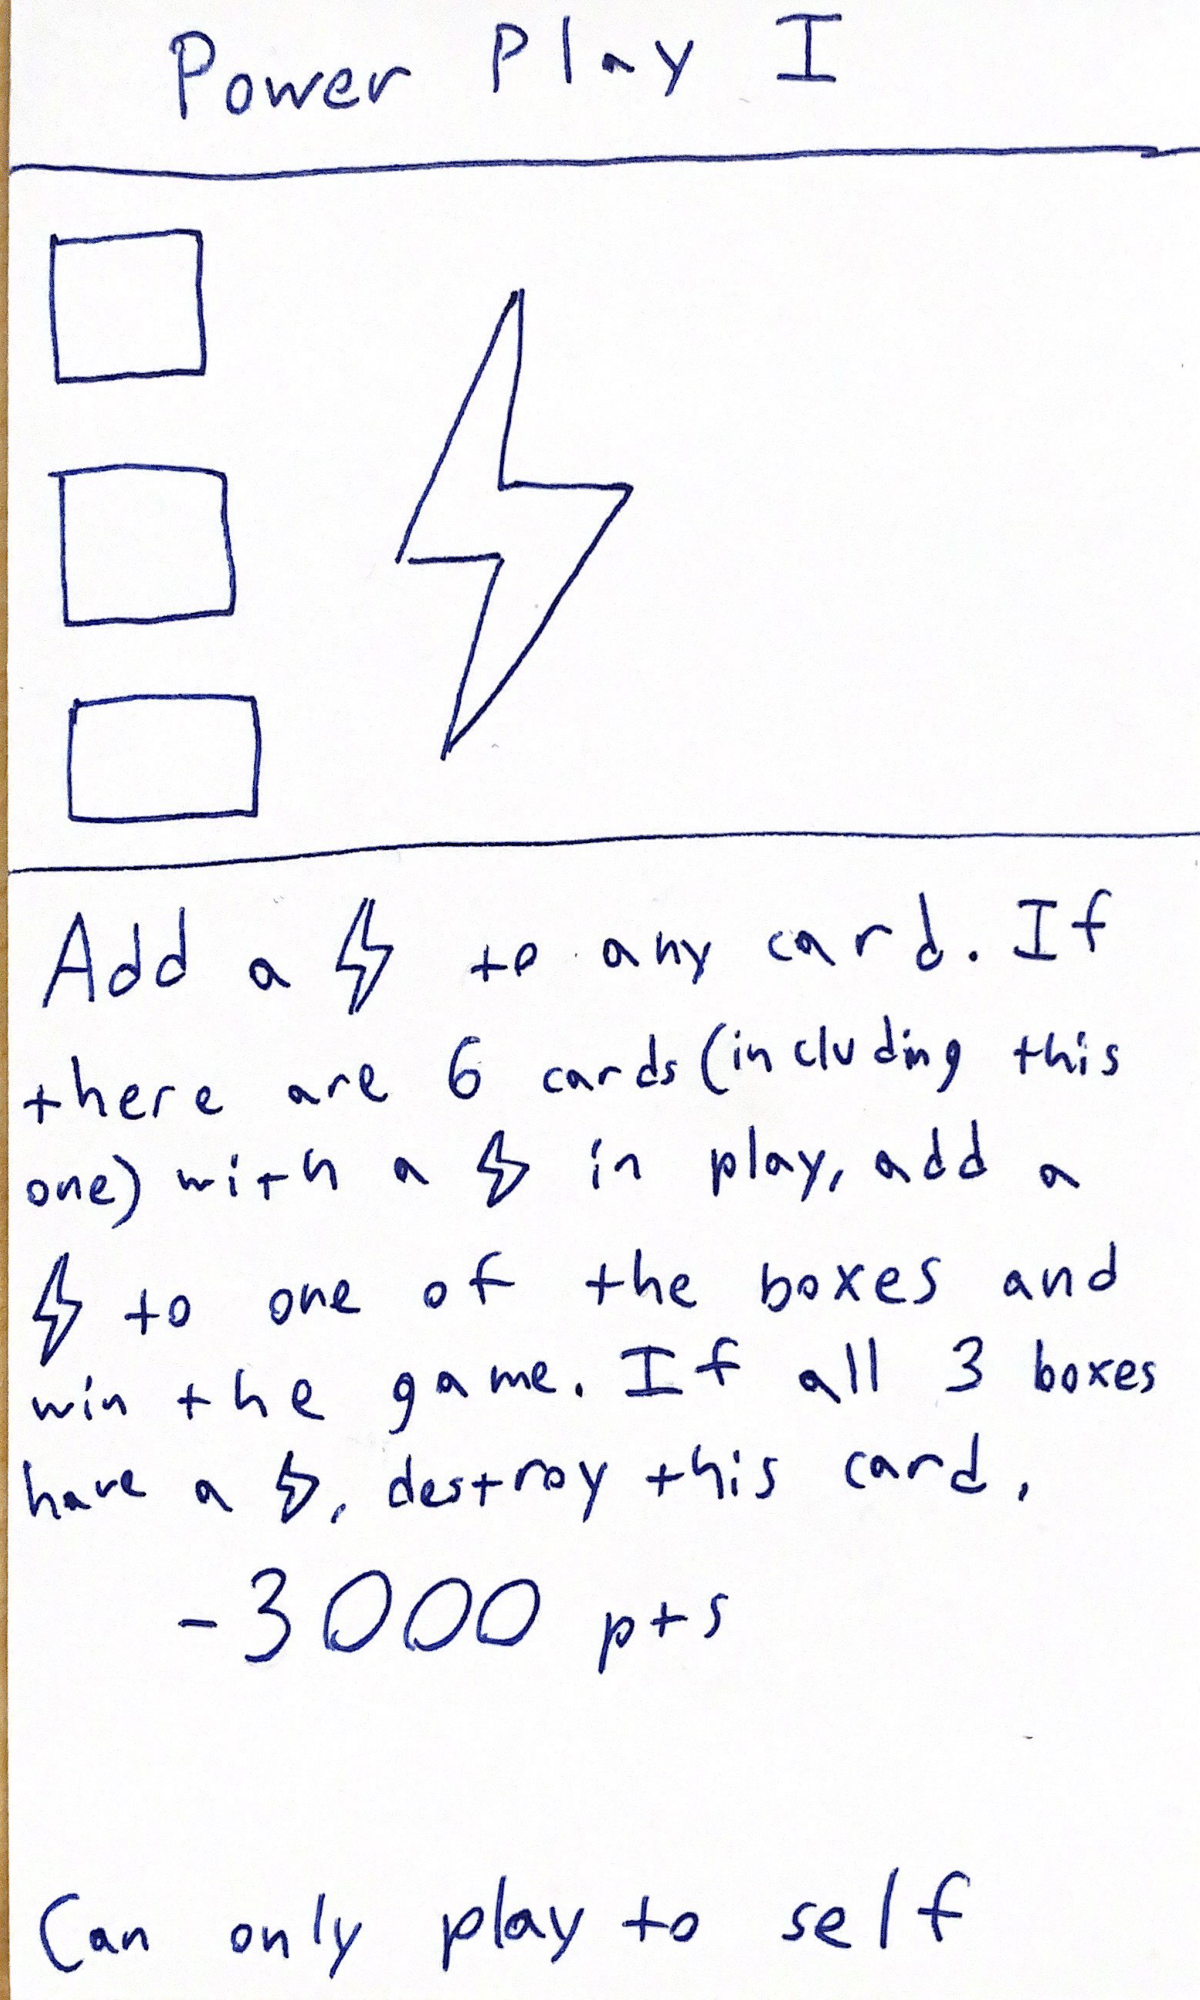 Power Play I
Add a ⚡ to any card. If
there are 6 cards (including this
one) with a ⚡ in play, add a
⚡ to one of the boxes and
win the game. If all 3 boxes
have a ⚡, destroy this card.
-3000 pts
Can only play to self